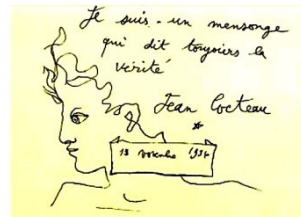 Je suis un mensonge
qui dit toujours la
vérité
Jean Cocteau
18 novembre 1934